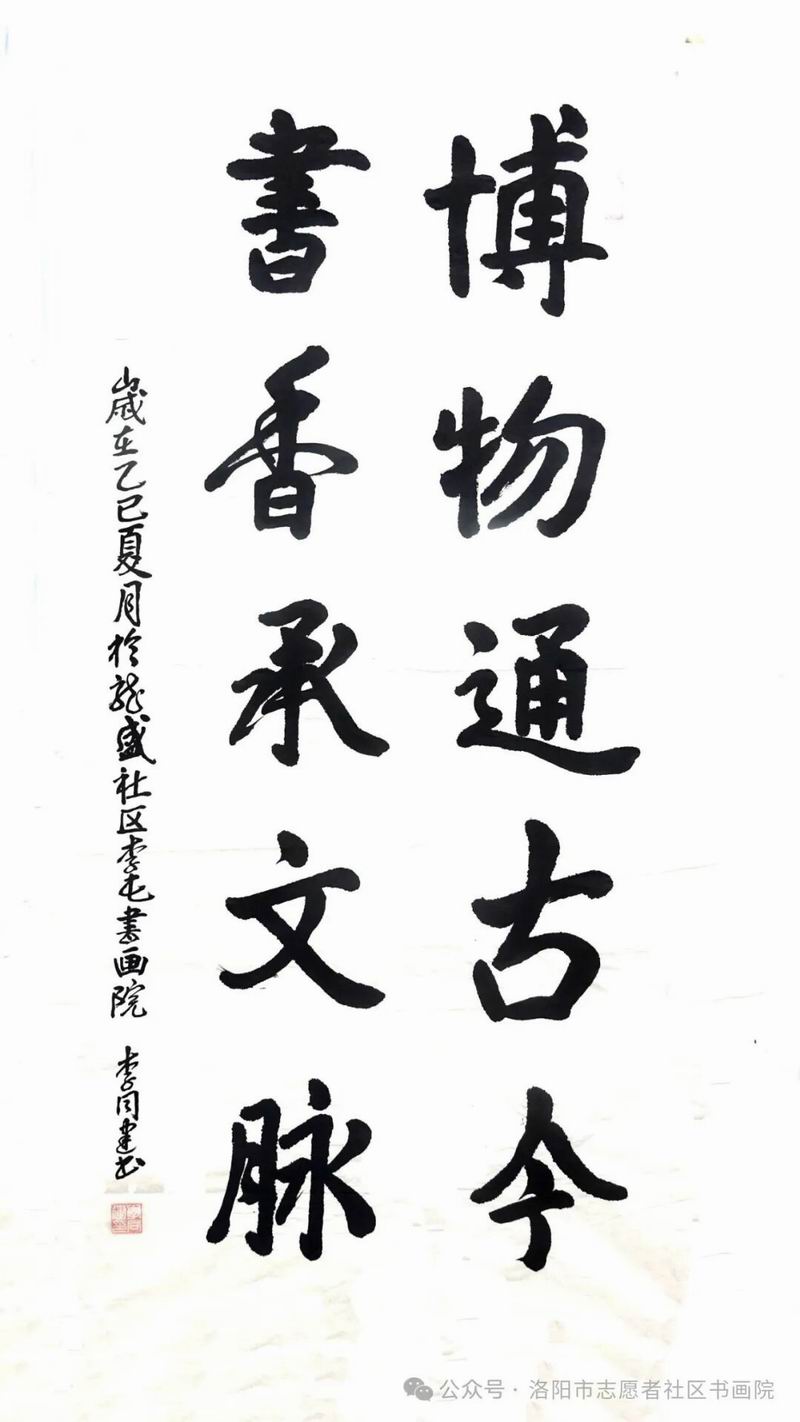 博物通古今
書香承文脉
歲在乙巳夏月於龍盛社区李屯書画院 李同建书
公众号·洛阳市志愿者社区书画院